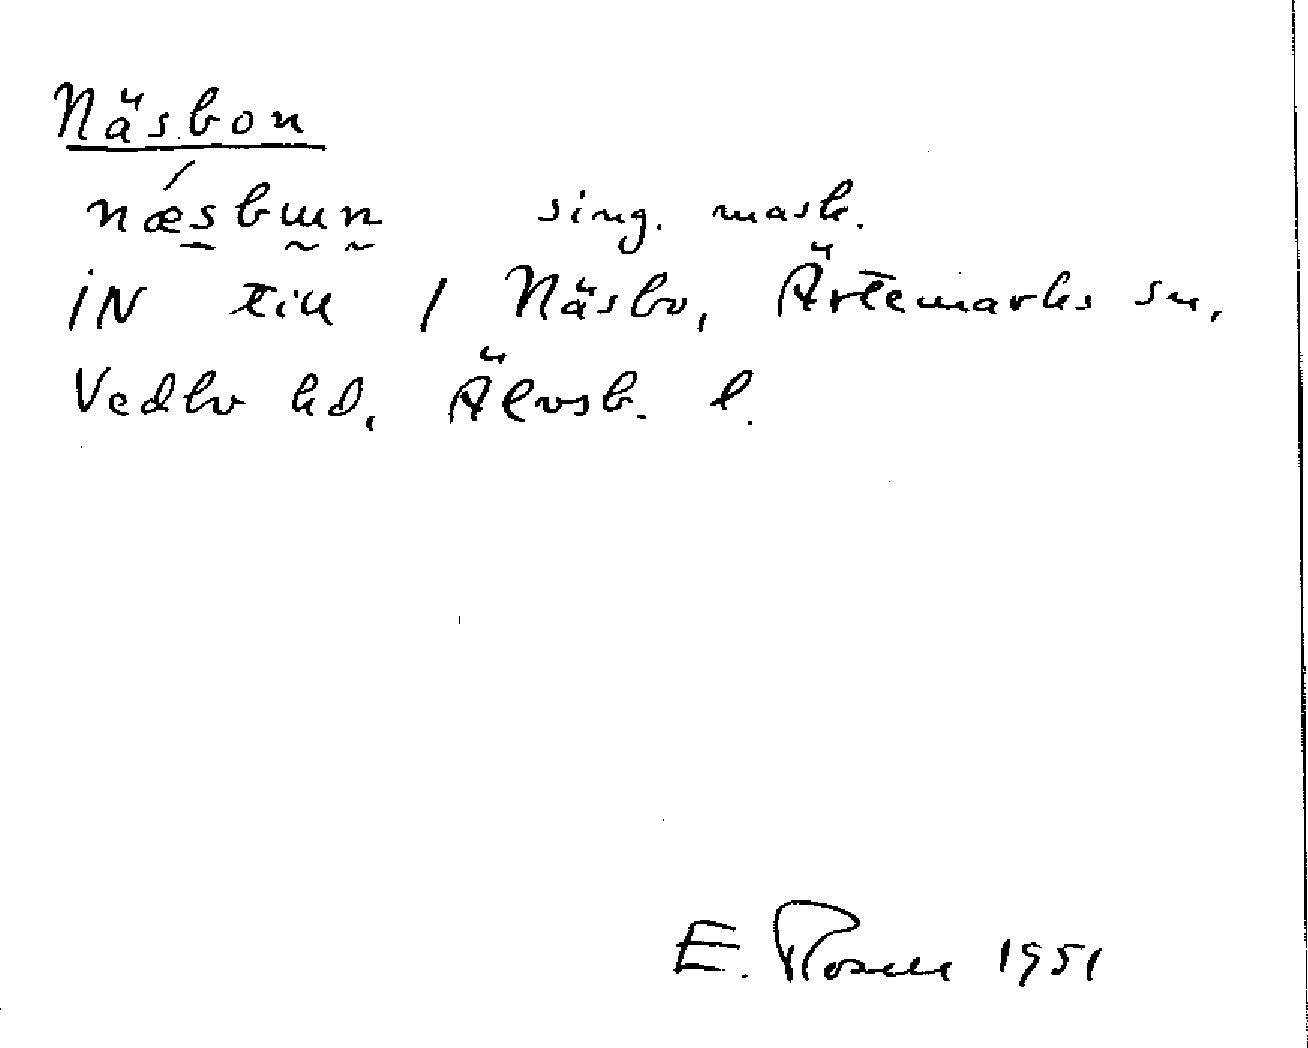 Näsbon
næ´sbɯn sing. mask.
IN till 1 Näsbo, Ärtemarks sn,
Vedbo hd, Älvsb. l.
E. Rosell 1951